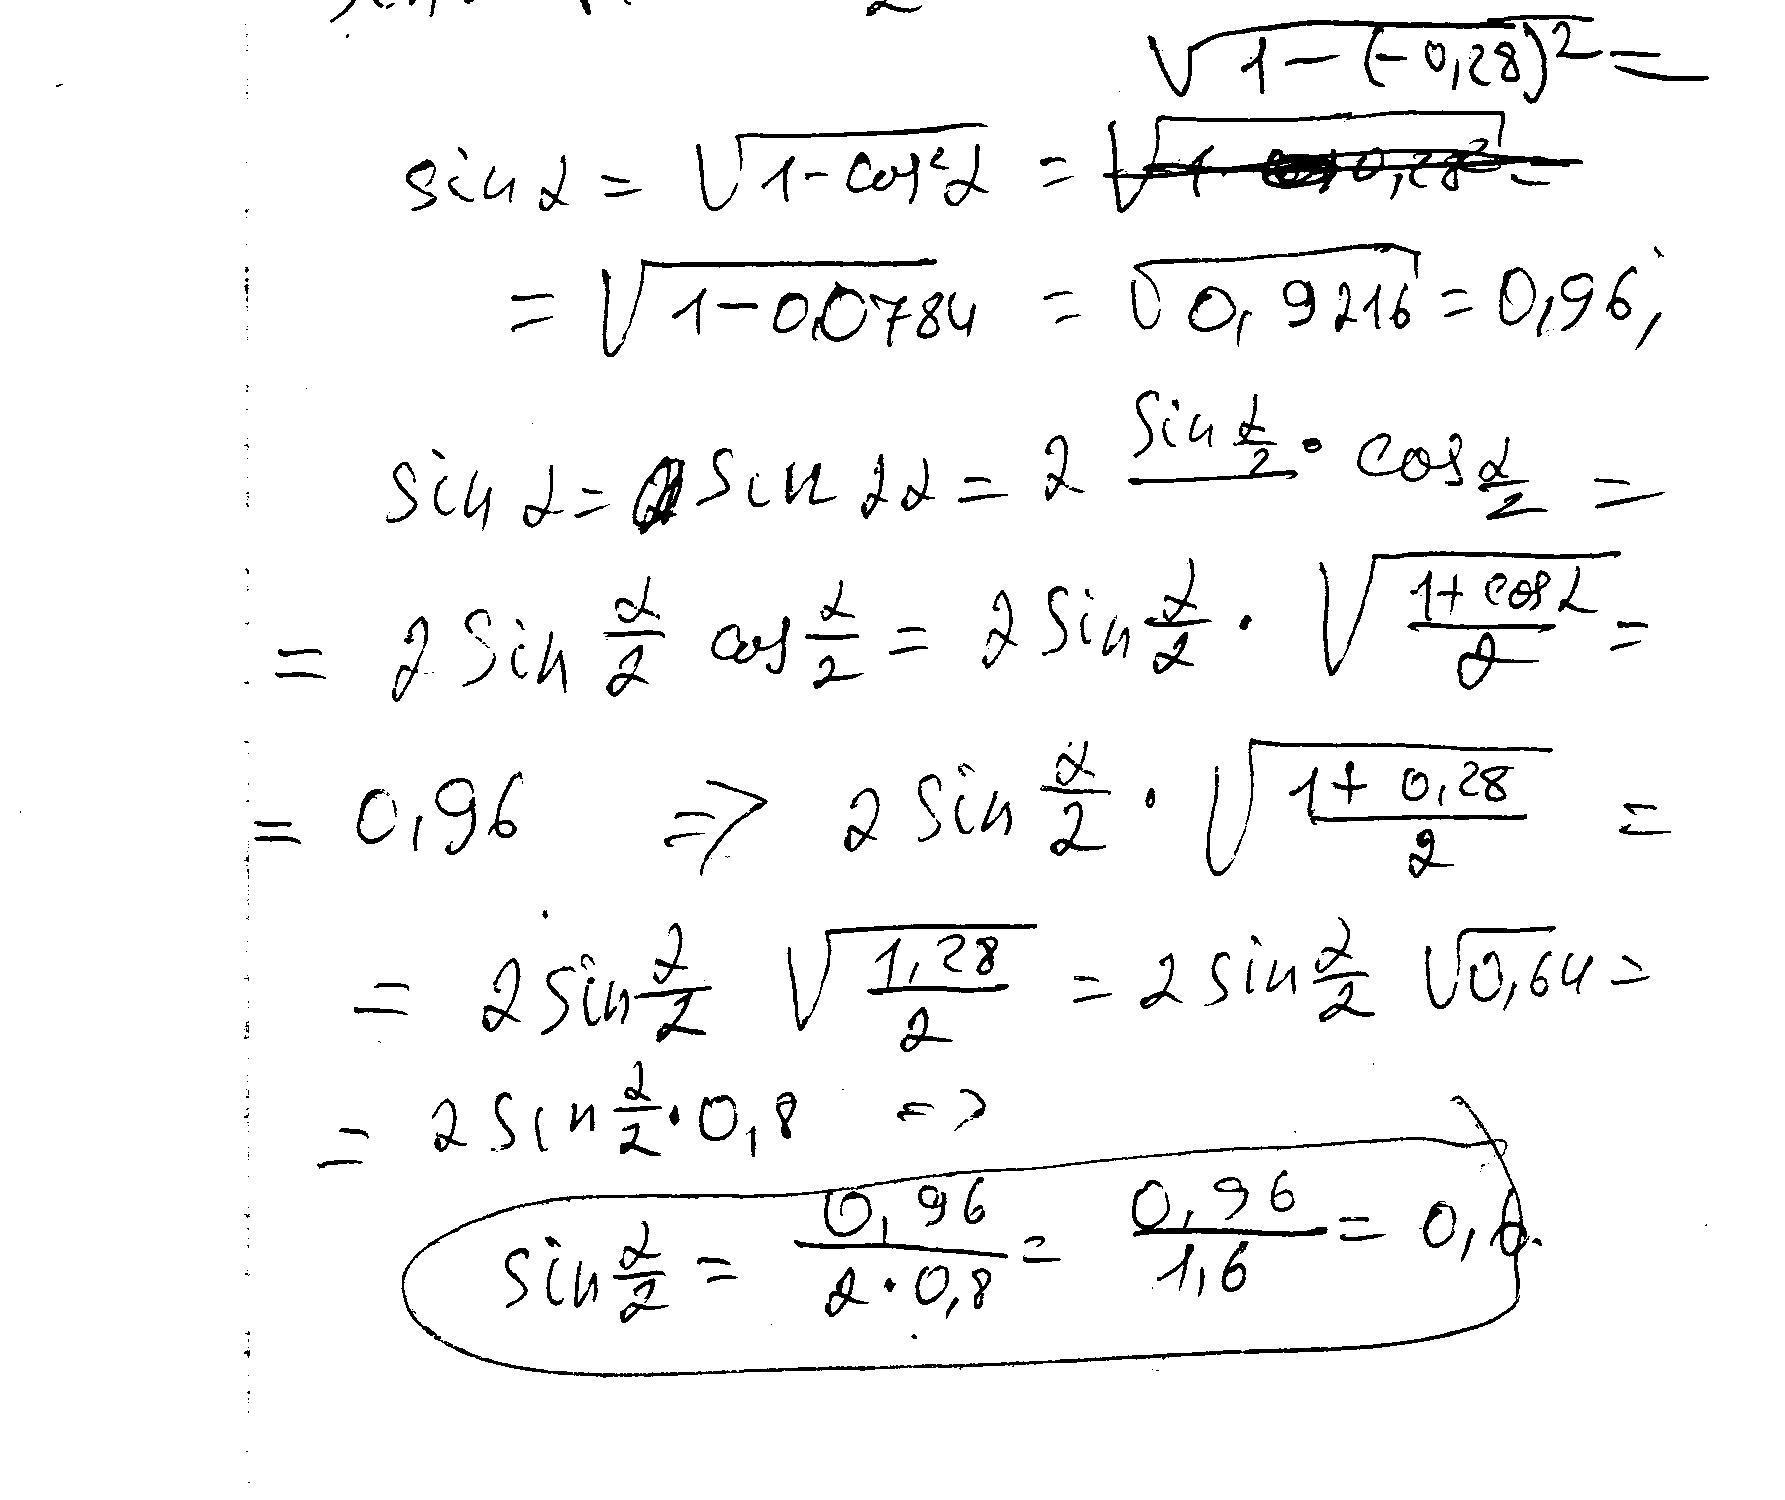 √(1-(-0,28)²) =
sin α = √(1-cos²α) =
= √(1-0,0784) = √(0,9216) = 0,96;
sin α = sin 2α = 2 sin α/2 · cos α/2 =
= 2 sin α/2 cos α/2 = 2 sin α/2 · √((1+cos α)/2) =
= 0,96 => 2 sin α/2 · √((1+0,28)/2) =
= 2 sin α/2 √(1,28/2) = 2 sin α/2 √0,64 =
= 2 sin α/2 · 0,8 =>
sin α/2 = 0,96/(2·0,8) = 0,96/1,6 = 0,6.